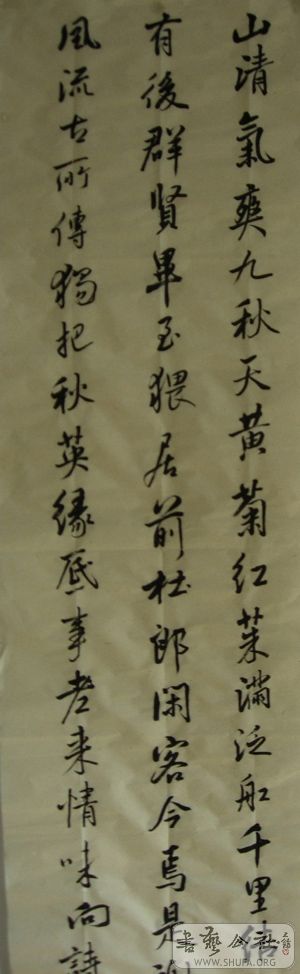 山清氣爽九秋天黄菊紅茱滿泛舡千里
有後群賢畢至猥居前杜郎閑客今焉是
風流古所傳獨把秋英緣底事老来情味向詩
書藝公社
WWW.SHUFA.ORG